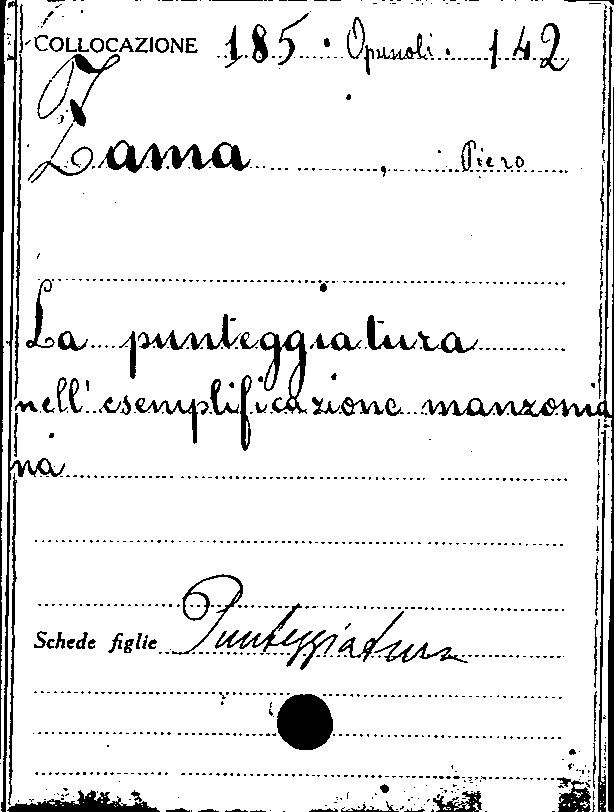 COLLOCAZIONE 185 . Opuscoli . 142
Z
Zama , Piero
La punteggiatura
nell'esemplificazione manzonia
na
Schede figlie Punteggiatura